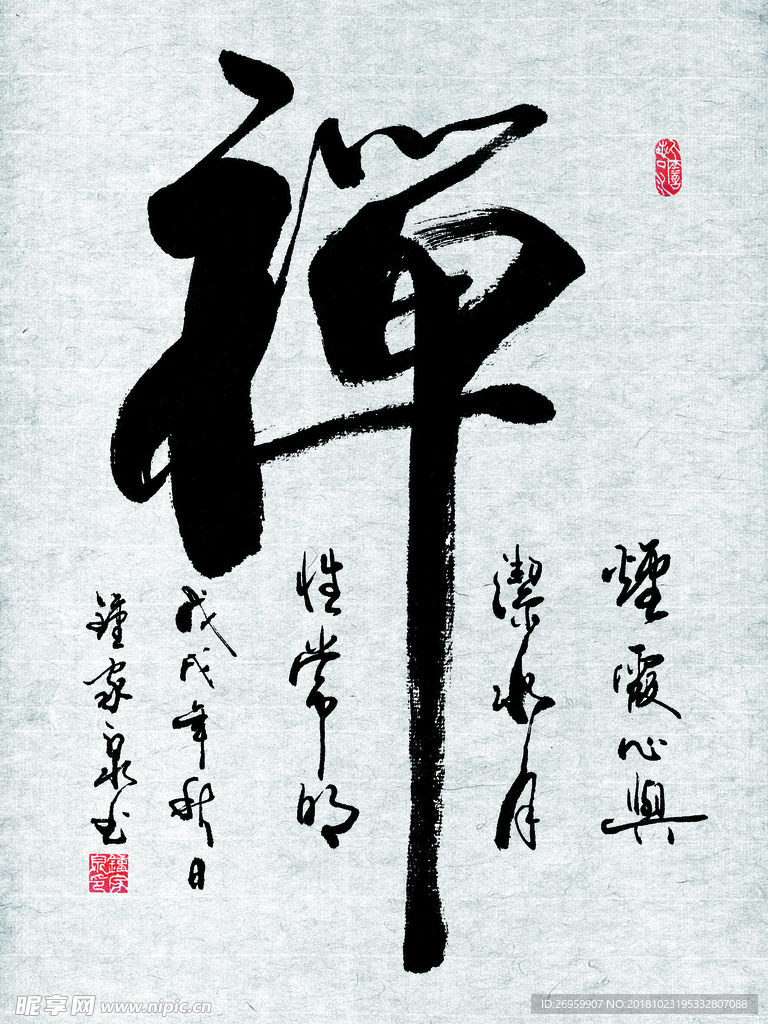 禪
煙霞心與
潔水月
性常明
戊戌年秋日
鍾家泉书
鍾家泉印
昵享网 www.nipic.cn
ID:26959907 NO:20181023195332807088